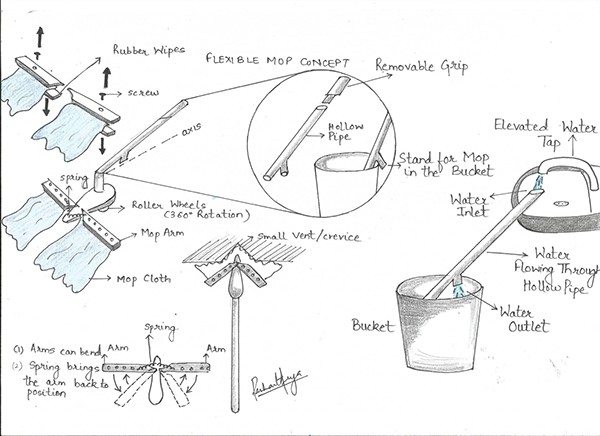 Rubber Wipes
FLEXIBLE MOP CONCEPT
Removable Grip
screw
axis
Hollow
Pipe
Elevated Water
Tap
Stand for Mop
in the Bucket
spring
Water
Inlet
Roller Wheels
(360° Rotation)
Mop Arm
small Vent/crevice
Water
Flowing Through
Hollow Pipe
Mop Cloth
Water
Outlet
Bucket
spring
(1) Arms can bend
Arm
Arm
(2) Spring brings
the arm back to
position